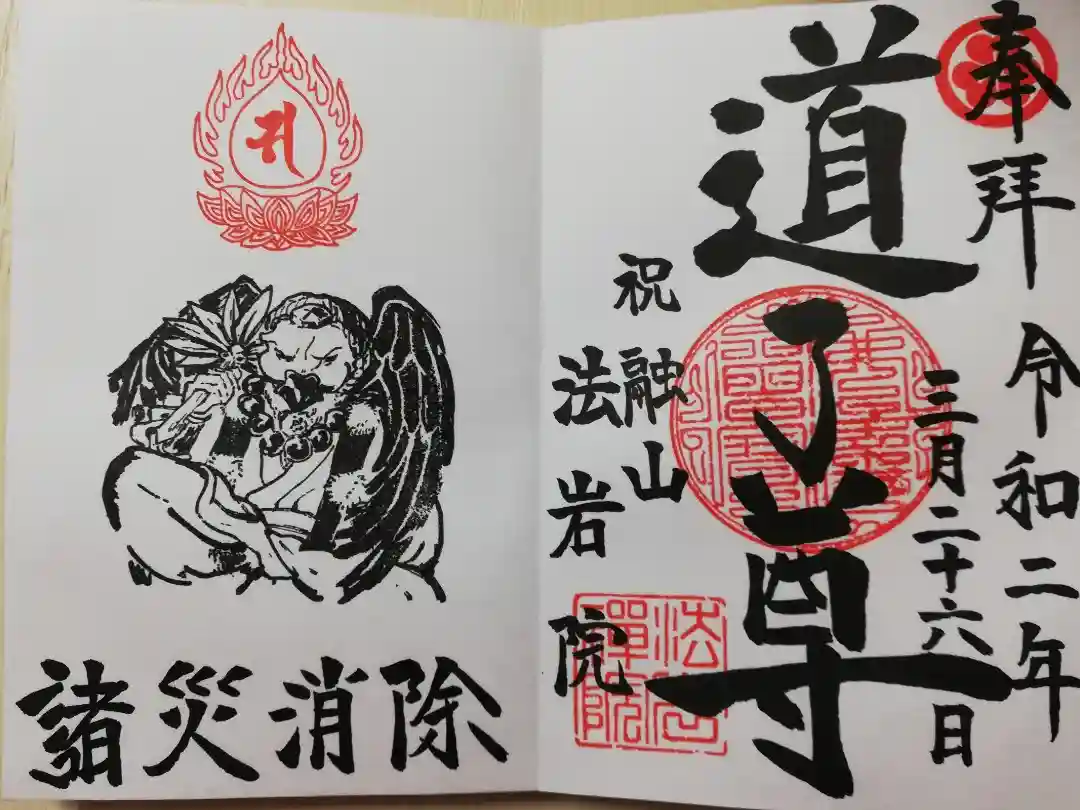 奉拝 令和二年
三月二十六日
道了尊
祝融山
法岩院
法岩
禪院
諸災消除